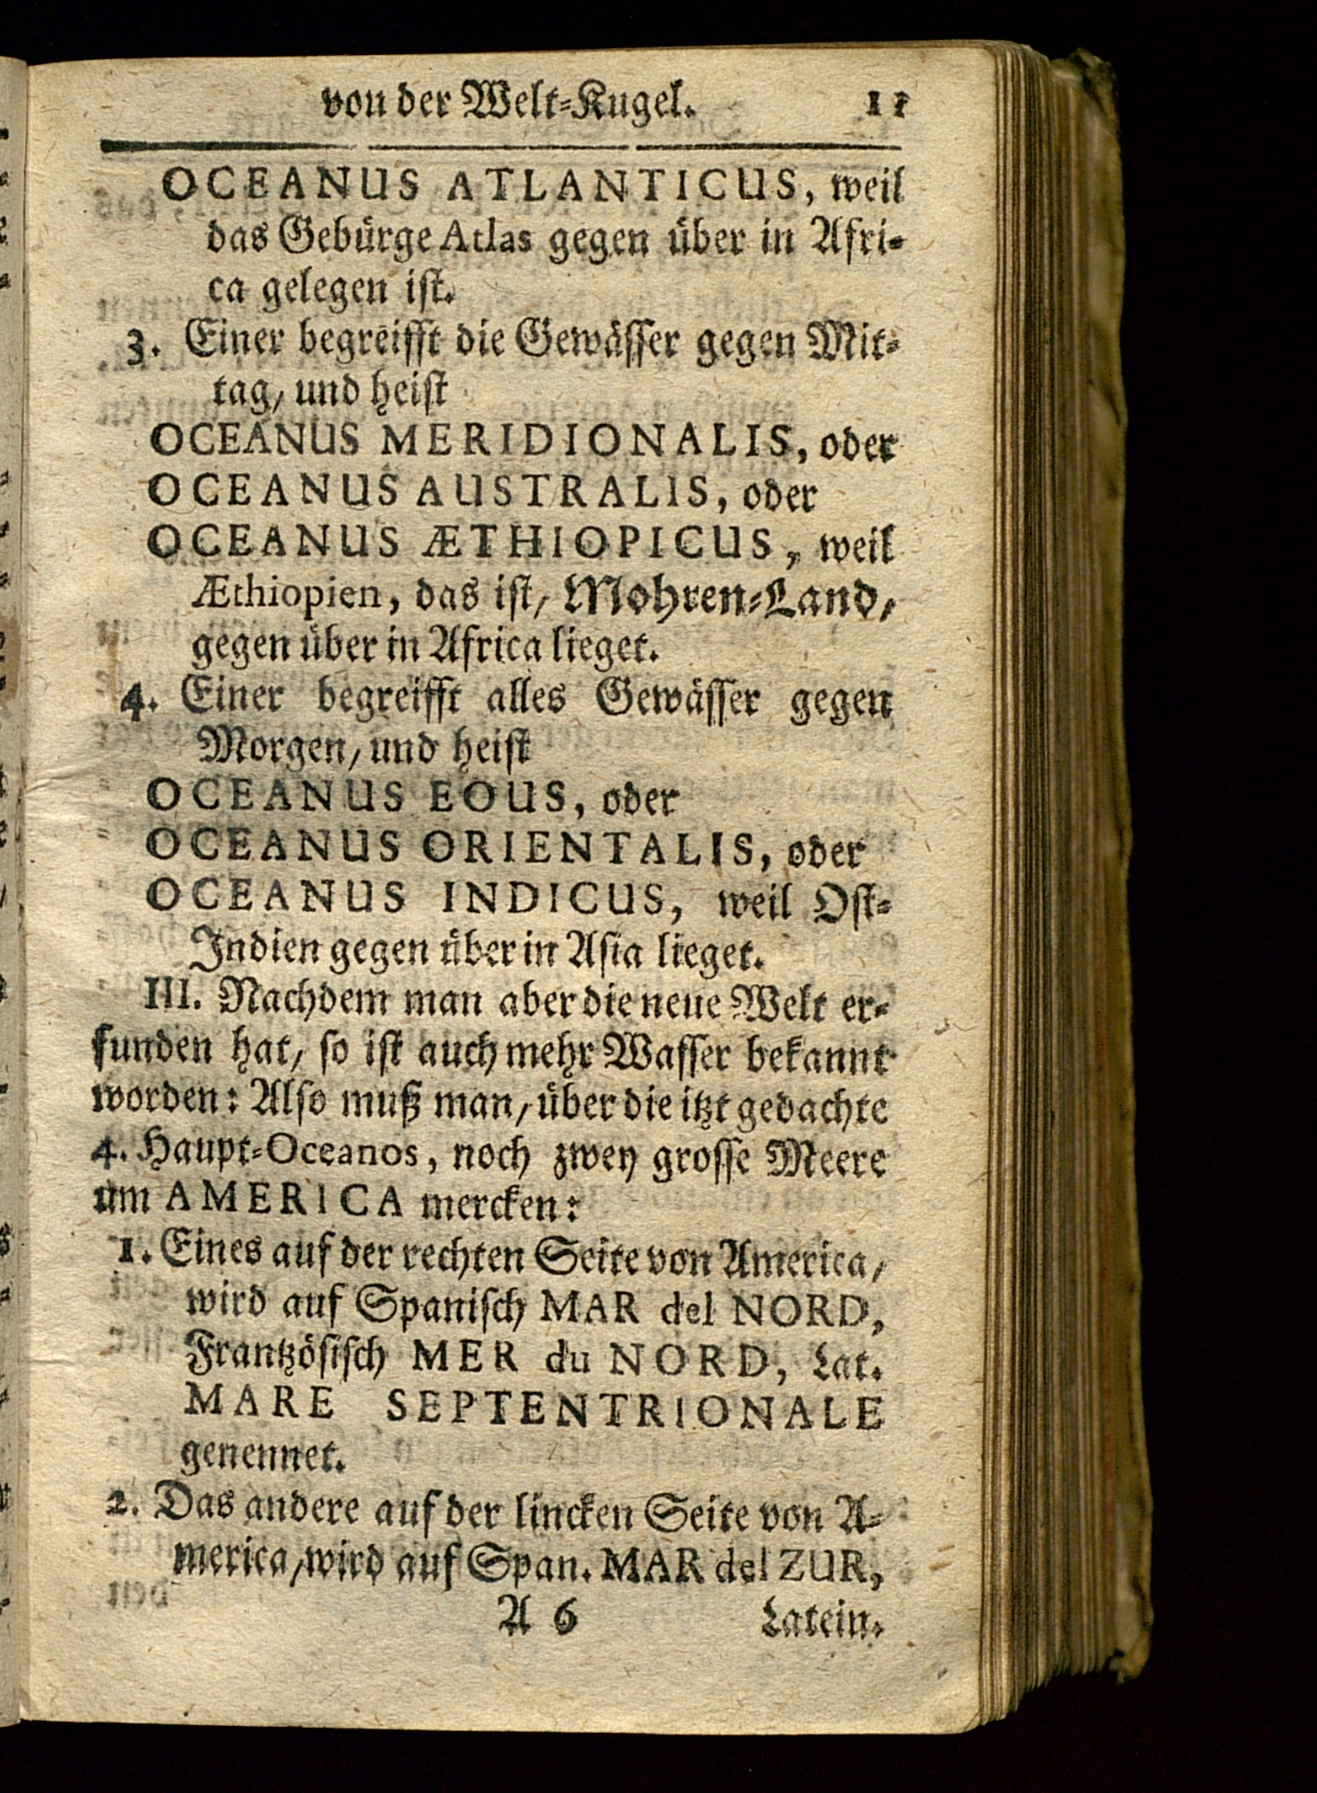 von der Welt-Kugel. 11
OCEANUS ATLANTICUS, weil
das Gebürge Atlas gegen über in Afri-
ca gelegen ist.
3. Einer begreifft die Gewässer gegen Mit-
tag, und heist
OCEANUS MERIDIONALIS, oder
OCEANUS AUSTRALIS, oder
OCEANUS ÆTHIOPICUS, weil
Æthiopien, das ist, Mohren-Land,
gegen über in Africa lieget.
4. Einer begreifft alles Gewässer gegen
Morgen, und heist
OCEANUS EOUS, oder
OCEANUS ORIENTALIS, oder
OCEANUS INDICUS, weil Ost-
Indien gegen über in Asia lieget.
III. Nachdem man aber die neue Welt er-
funden hat, so ist auch mehr Wasser bekannt
worden: Also muß man, über die itzt gedachte
4. Haupt-Oceanos, noch zwey grosse Meere
um AMERICA mercken:
1. Eines auf der rechten Seite von America,
wird auf Spanisch MAR del NORD,
Frantzösisch MER du NORD, Lat.
MARE SEPTENTRIONALE
genennet.
2. Das andere auf der lincken Seite von A-
merica, wird auf Span. MAR del ZUR,
A 6 Latein.